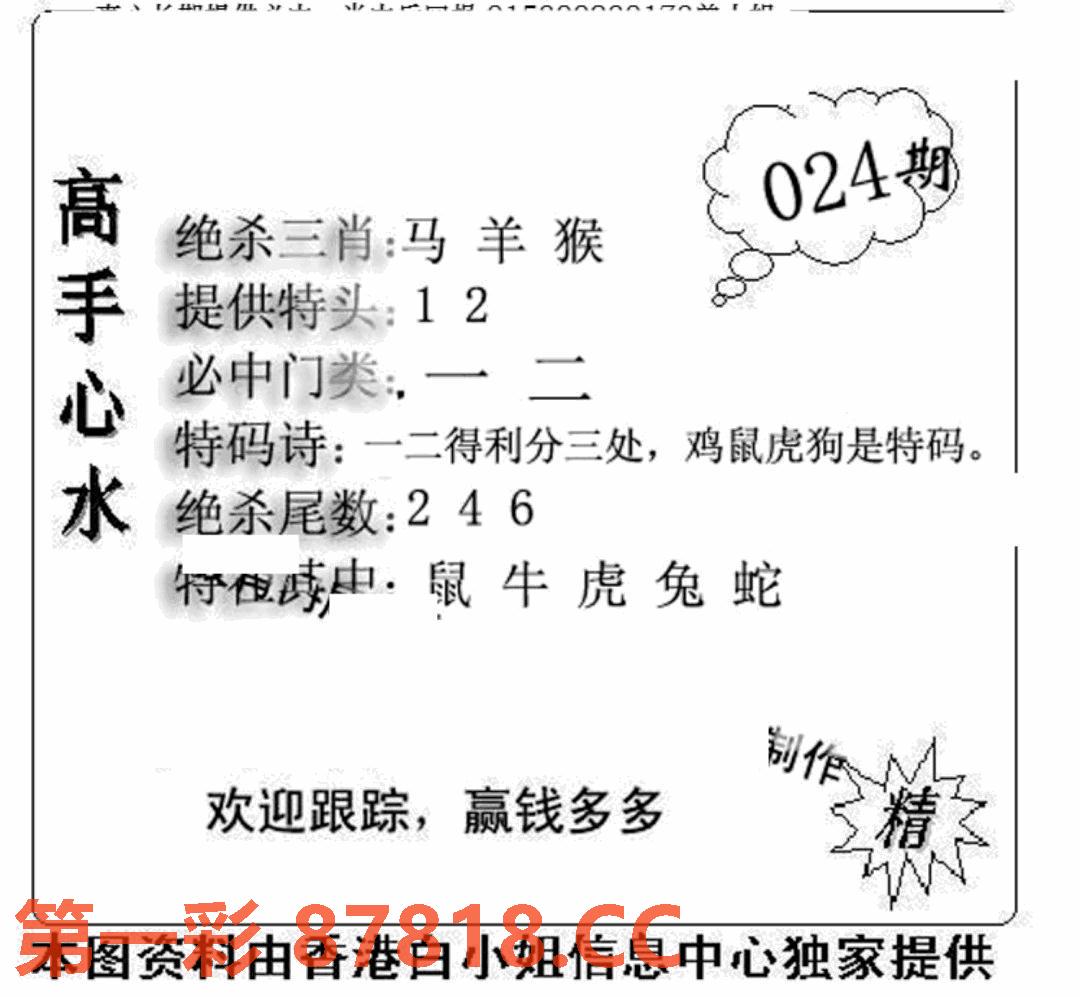 024期
高手心水
绝杀三肖:马 羊 猴
提供特头:1 2
必中门类:一 二
特码诗:一二得利分三处，鸡鼠虎狗是特码。
绝杀尾数:2 4 6
鼠 牛 虎 兔 蛇
制作
精
欢迎跟踪，赢钱多多
第一彩 87818.CC
本图资料由香港白小姐信息中心独家提供